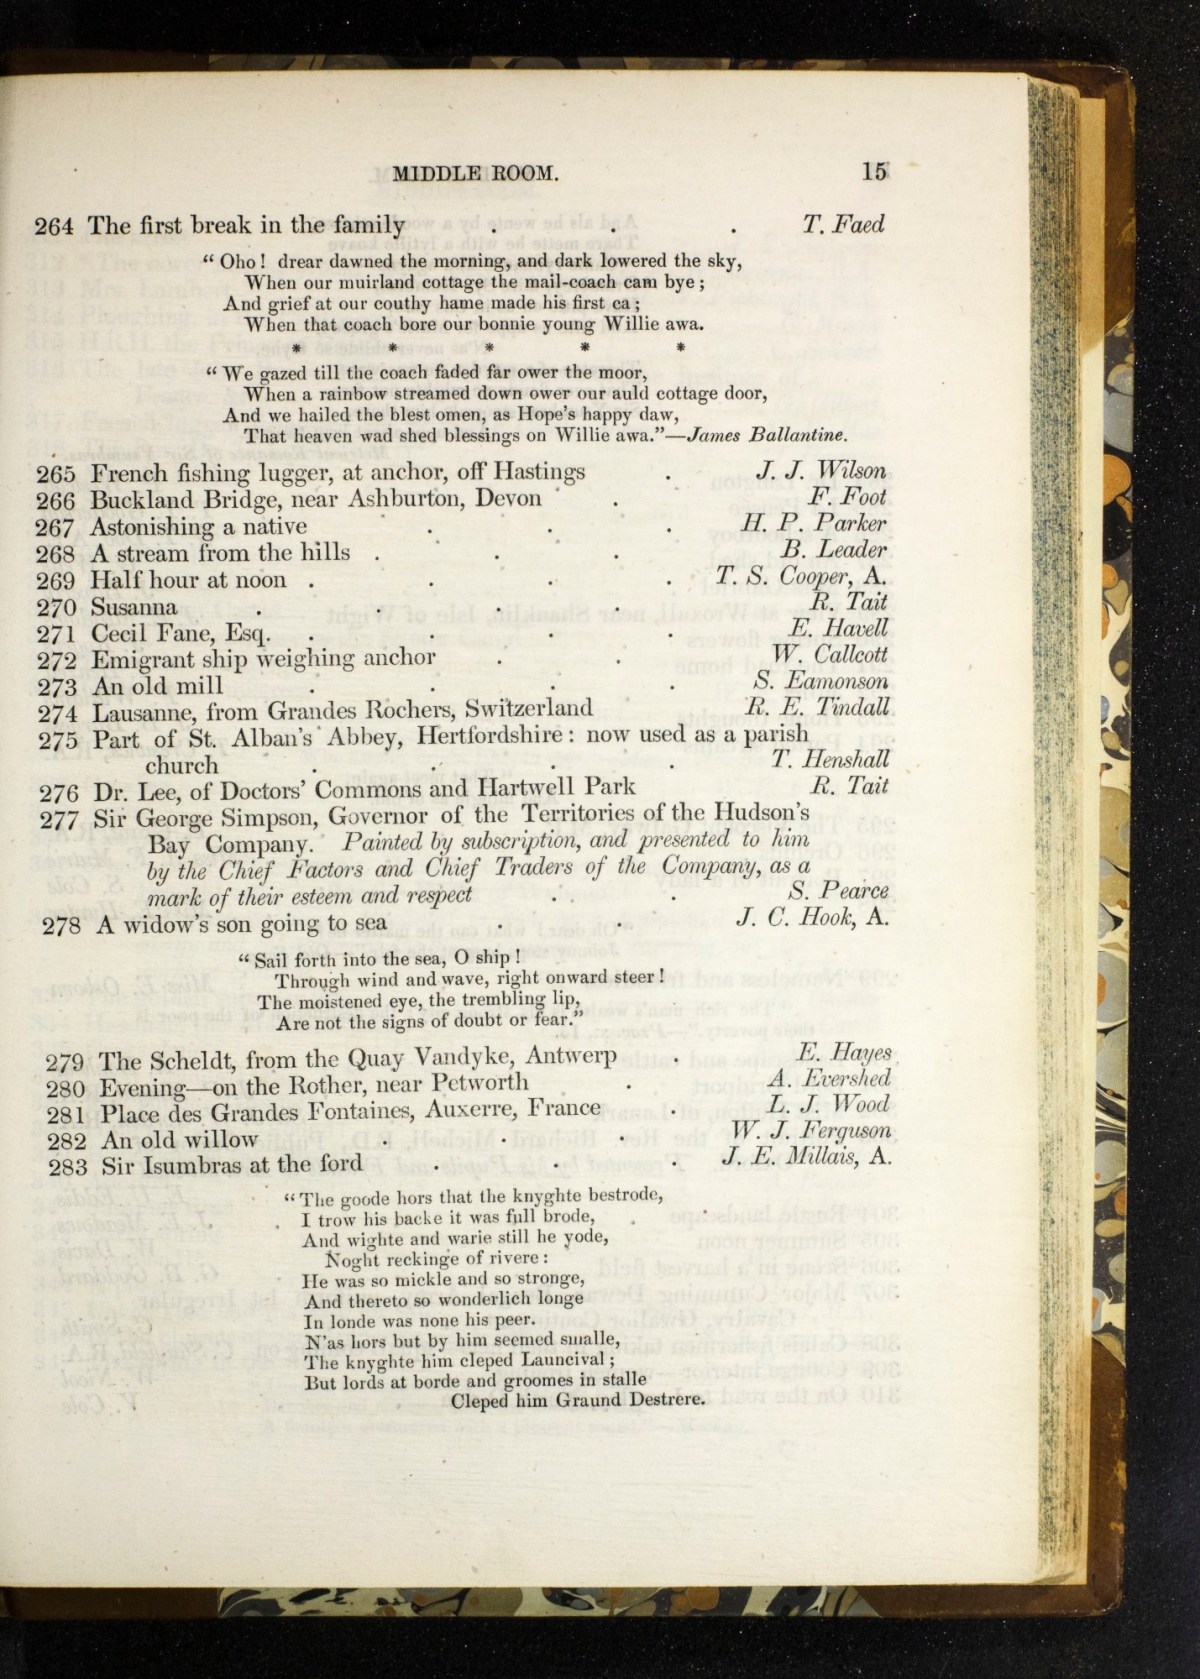 MIDDLE ROOM. 15
264 The first break in the family . . . T. Faed
“ Oho ! drear dawned the morning, and dark lowered the sky,
When our muirland cottage the mail-coach cam bye ;
And grief at our couthy hame made his first ca ;
When that coach bore our bonnie young Willie awa.
* * * * *
“ We gazed till the coach faded far ower the moor,
When a rainbow streamed down ower our auld cottage door,
And we hailed the blest omen, as Hope's happy daw,
That heaven wad shed blessings on Willie awa.”—James Ballantine.
265 French fishing lugger, at anchor, off Hastings . J. J. Wilson
266 Buckland Bridge, near Ashburton, Devon . F. Foot
267 Astonishing a native . . . H. P. Parker
268 A stream from the hills . . . B. Leader
269 Half hour at noon . . . . T. S. Cooper, A.
270 Susanna . . . . R. Tait
271 Cecil Fane, Esq. . . . . E. Havell
272 Emigrant ship weighing anchor . . W. Callcott
273 An old mill . . . . S. Eamonson
274 Lausanne, from Grandes Rochers, Switzerland R. E. Tindall
275 Part of St. Alban's Abbey, Hertfordshire : now used as a parish
church . . . . T. Henshall
276 Dr. Lee, of Doctors' Commons and Hartwell Park R. Tait
277 Sir George Simpson, Governor of the Territories of the Hudson's
Bay Company. Painted by subscription, and presented to him
by the Chief Factors and Chief Traders of the Company, as a
mark of their esteem and respect . . S. Pearce
278 A widow's son going to sea . . J. C. Hook, A.
“ Sail forth into the sea, O ship !
Through wind and wave, right onward steer !
The moistened eye, the trembling lip,
Are not the signs of doubt or fear.”
279 The Scheldt, from the Quay Vandyke, Antwerp . E. Hayes
280 Evening—on the Rother, near Petworth . A. Evershed
281 Place des Grandes Fontaines, Auxerre, France . L. J. Wood
282 An old willow . . . W. J. Ferguson
283 Sir Isumbras at the ford . . . J. E. Millais, A.
“ The goode hors that the knyghte bestrode,
I trow his backe it was full brode,
And wighte and warie still he yode,
Noght reckinge of rivere :
He was so mickle and so stronge,
And thereto so wonderlich longe
In londe was none his peer.
N'as hors but by him seemed smalle,
The knyghte him cleped Launcival ;
But lords at borde and groomes in stalle
Cleped him Graund Destrere.